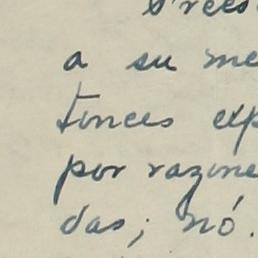 a su me
tonces exp
por razone
das; nó.